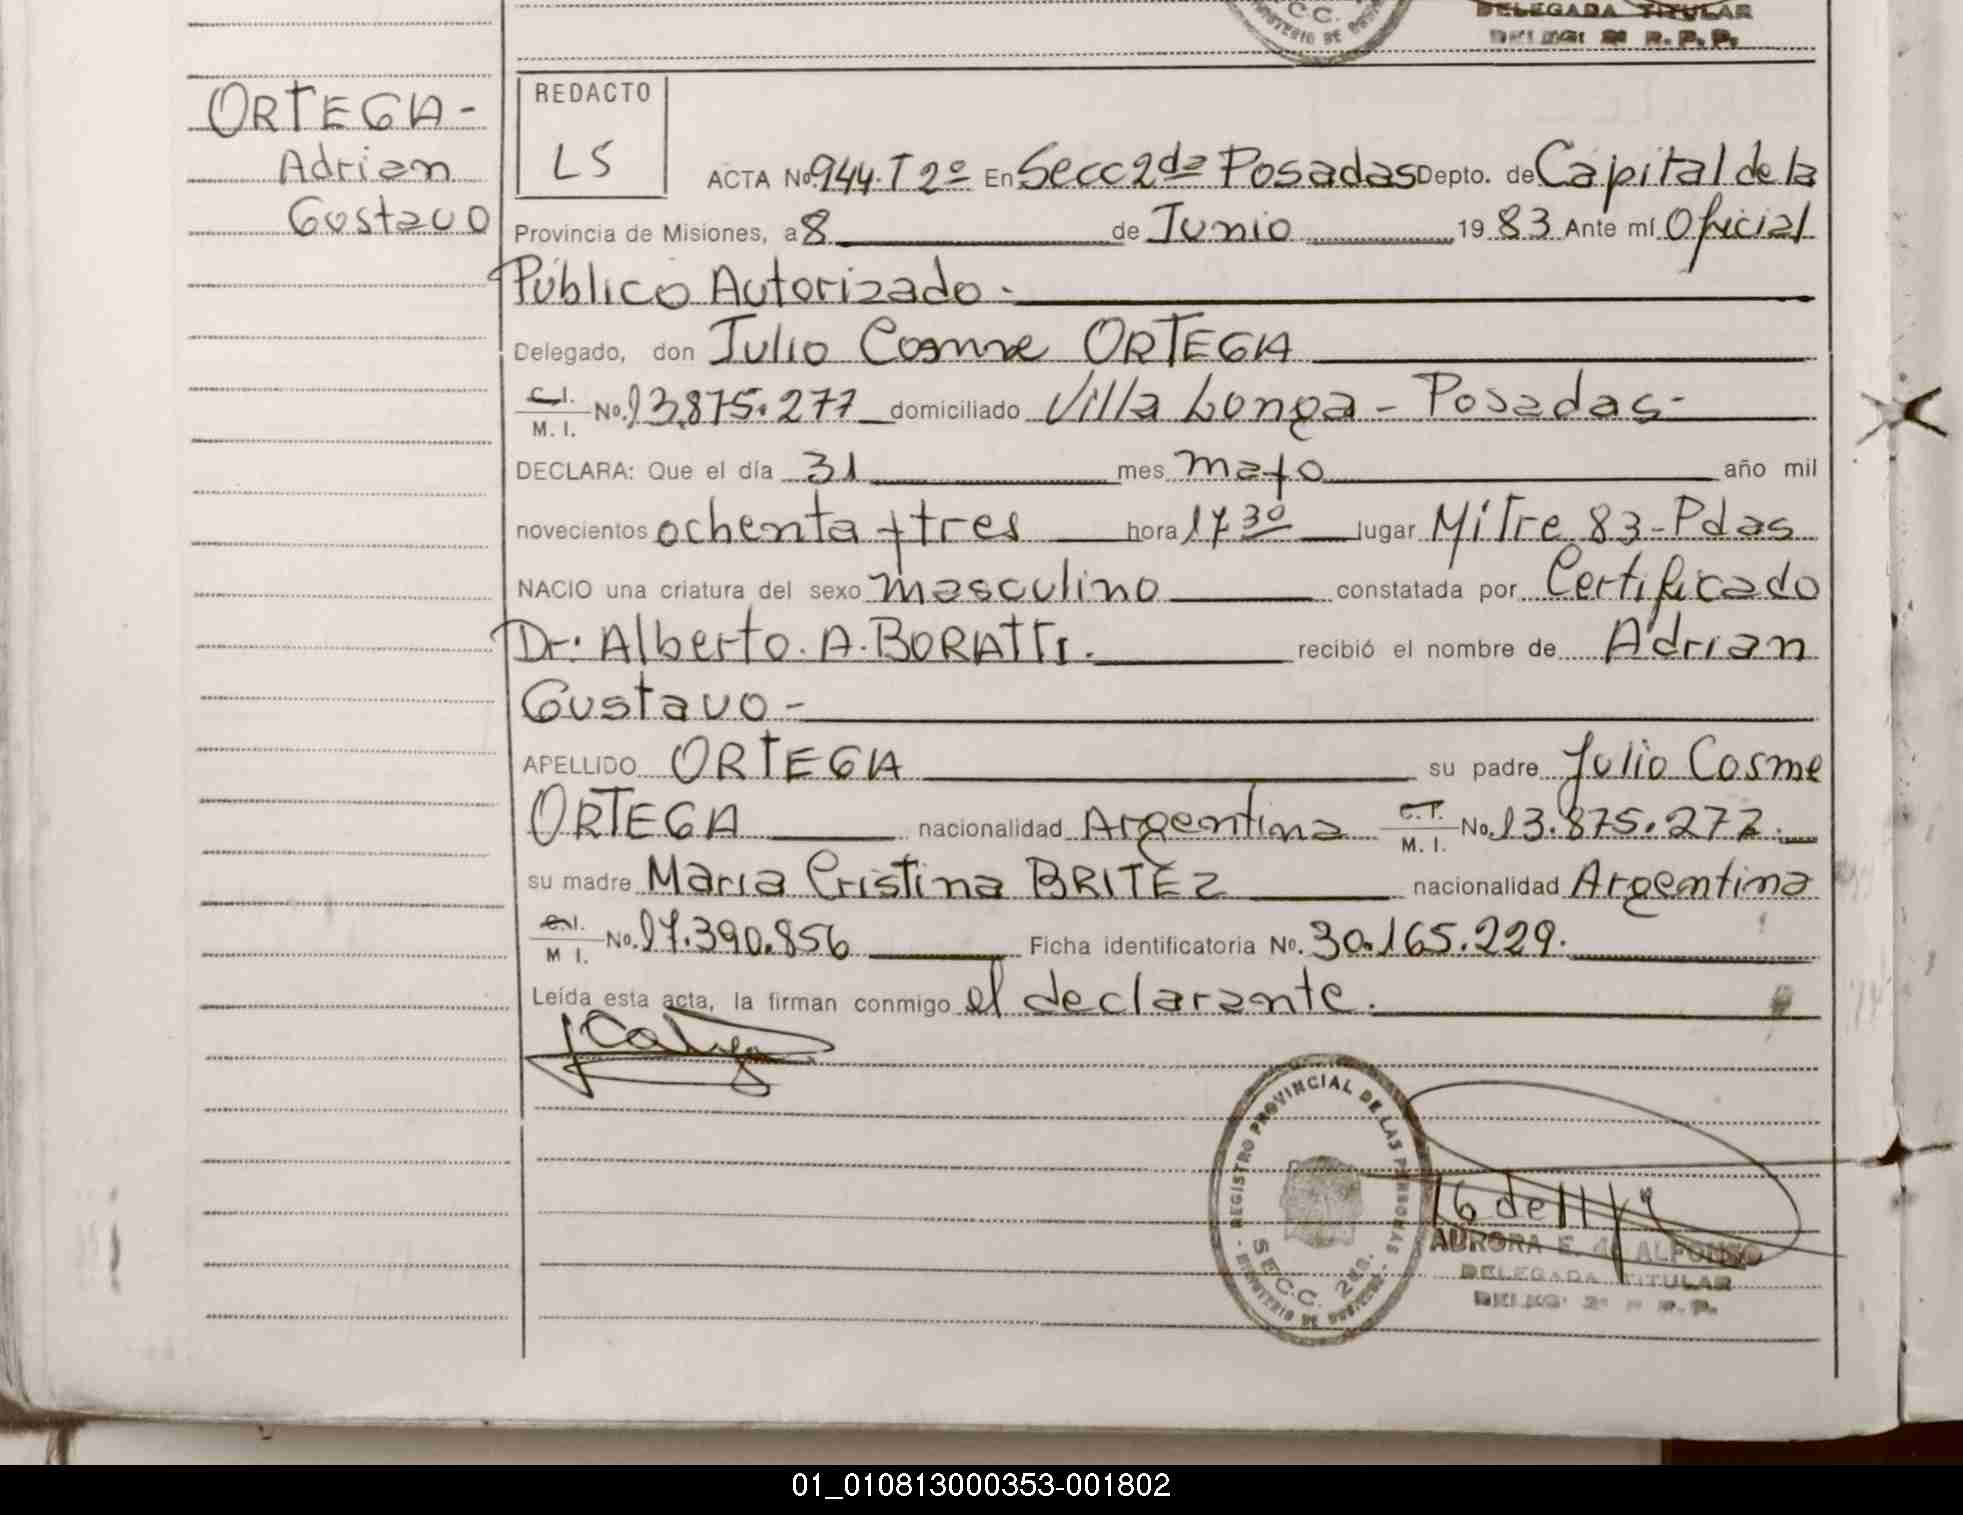 DELEGADA TITULAR
DELEG: 2ª R. P. P.
ORTEGA -
Adrian
Gustavo
REDACTO
LS
ACTA No. 944. T 2º En Secc 2da Posadas Depto. de Capital de la
Provincia de Misiones, a 8 de Junio 19 83 Ante mí Oficial
Público Autorizado.
Delegado, don Julio Cosme ORTEGA
C.I. M. I. No. 13.875.277 domiciliado Villa Longa - Posadas-
DECLARA: Que el día 31 mes mayo año mil
novecientos ochenta y tres hora 17 30 lugar Mitre 83-Pdas
NACIO una criatura del sexo masculino constatada por Certificado
Dr. Alberto. A. BORATTI. recibió el nombre de Adrian
Gustavo -
APELLIDO ORTEGA su padre Julio Cosme
ORTEGA nacionalidad Argentina C.I. M. I. No. 13.875.277.
su madre Maria Cristina BRITEZ nacionalidad Argentina
C.I. M I. No. 17.390.856 Ficha identificatoria No. 30.165.229.
Leída esta acta, la firman conmigo el declarante.
REGISTRO PROVINCIAL DE LAS PERSONAS
SECC. 2da.
AURORA E. de ALFONSO
DELEGADA TITULAR
DELEG: 2ª R. P. P.
01_010813000353-001802